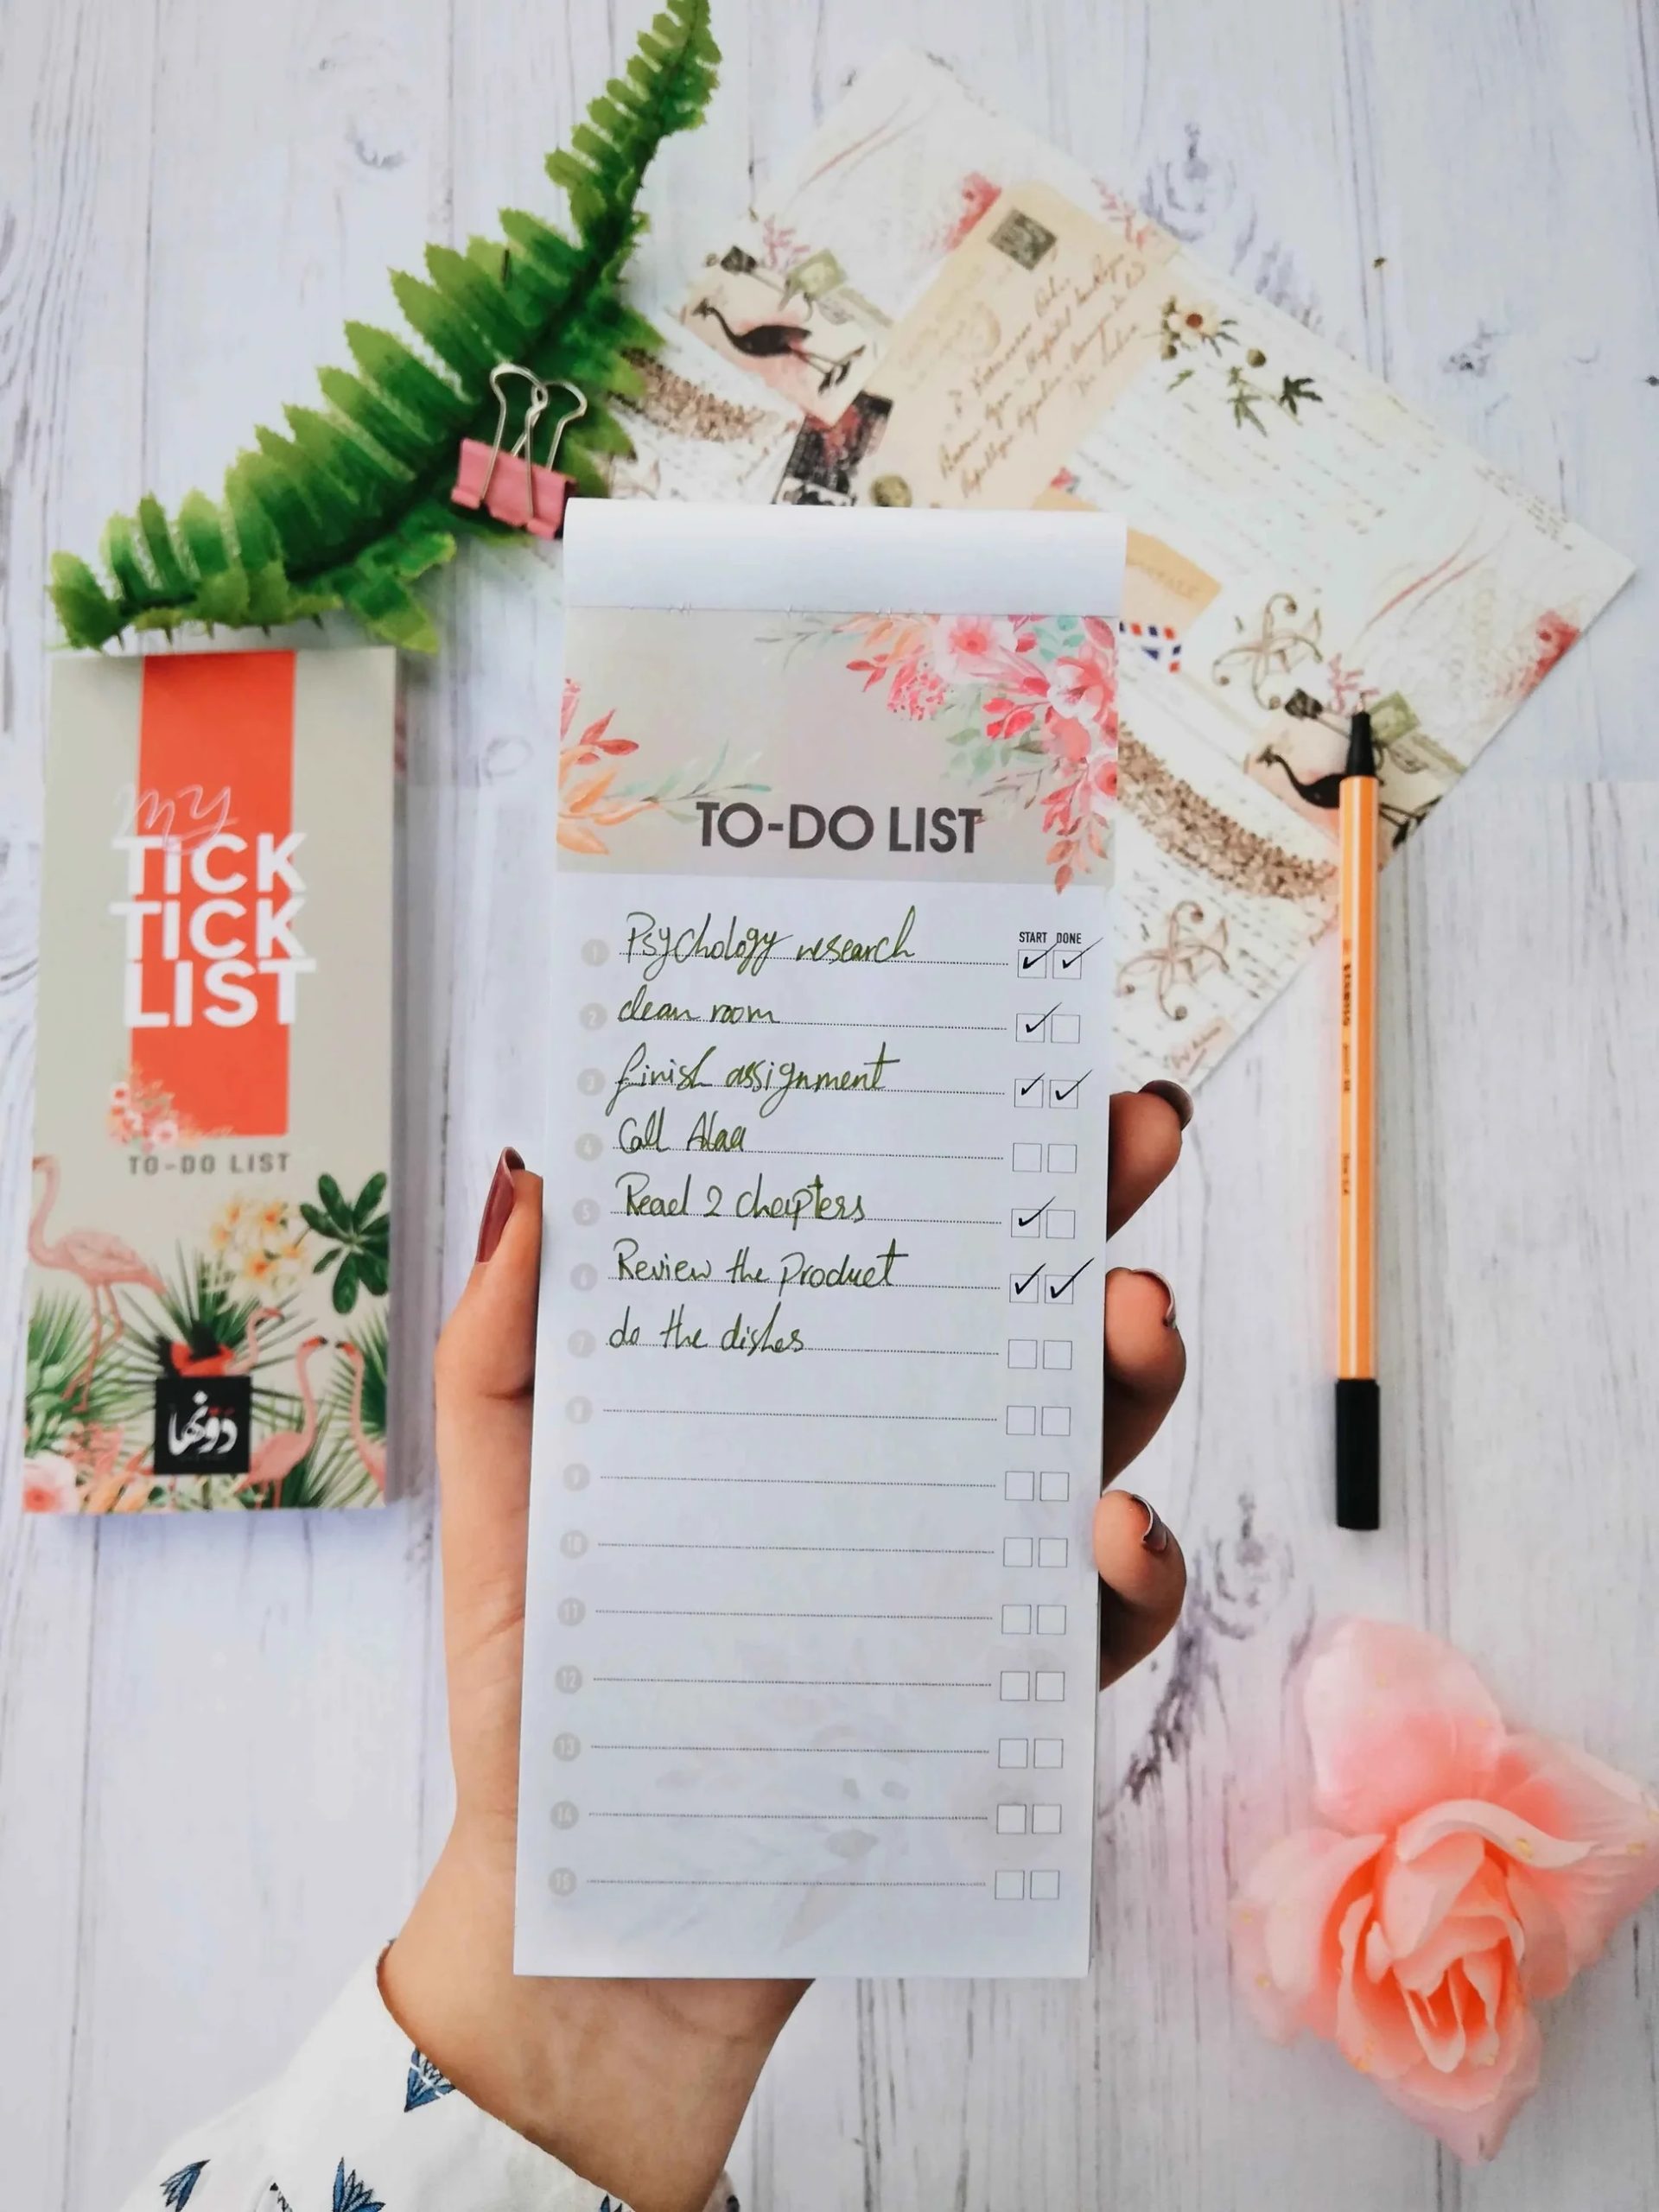 my
TICK
TICK
LIST
TO-DO LIST
دَوّنها
TO-DO LIST
START DONE
1 Psychology research
2 clean room
3 finish assignment
4 Call Alaa
5 Read 2 chapters
6 Review the Product
7 do the dishes
8
9
10
11
12
13
14
15